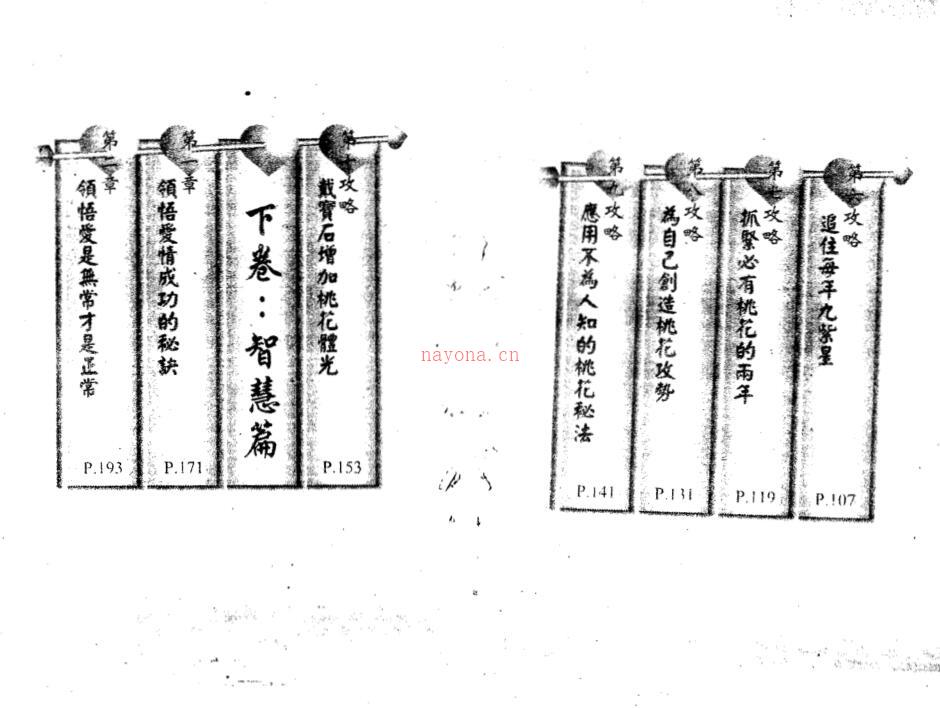 第六攻略
追住每年九紫星
P.107
第七攻略
抓緊必有桃花的兩年
P.119
第八攻略
為自己創造桃花攻勢
P.131
第九攻略
應用不為人知的桃花秘法
P.141
第十攻略
戴寶石增加桃花體光
P.153
下卷：智慧篇
第一章
領悟愛情成功的秘訣
P.171
第二章
領悟愛是無常才是正常
P.193
nayona.cn